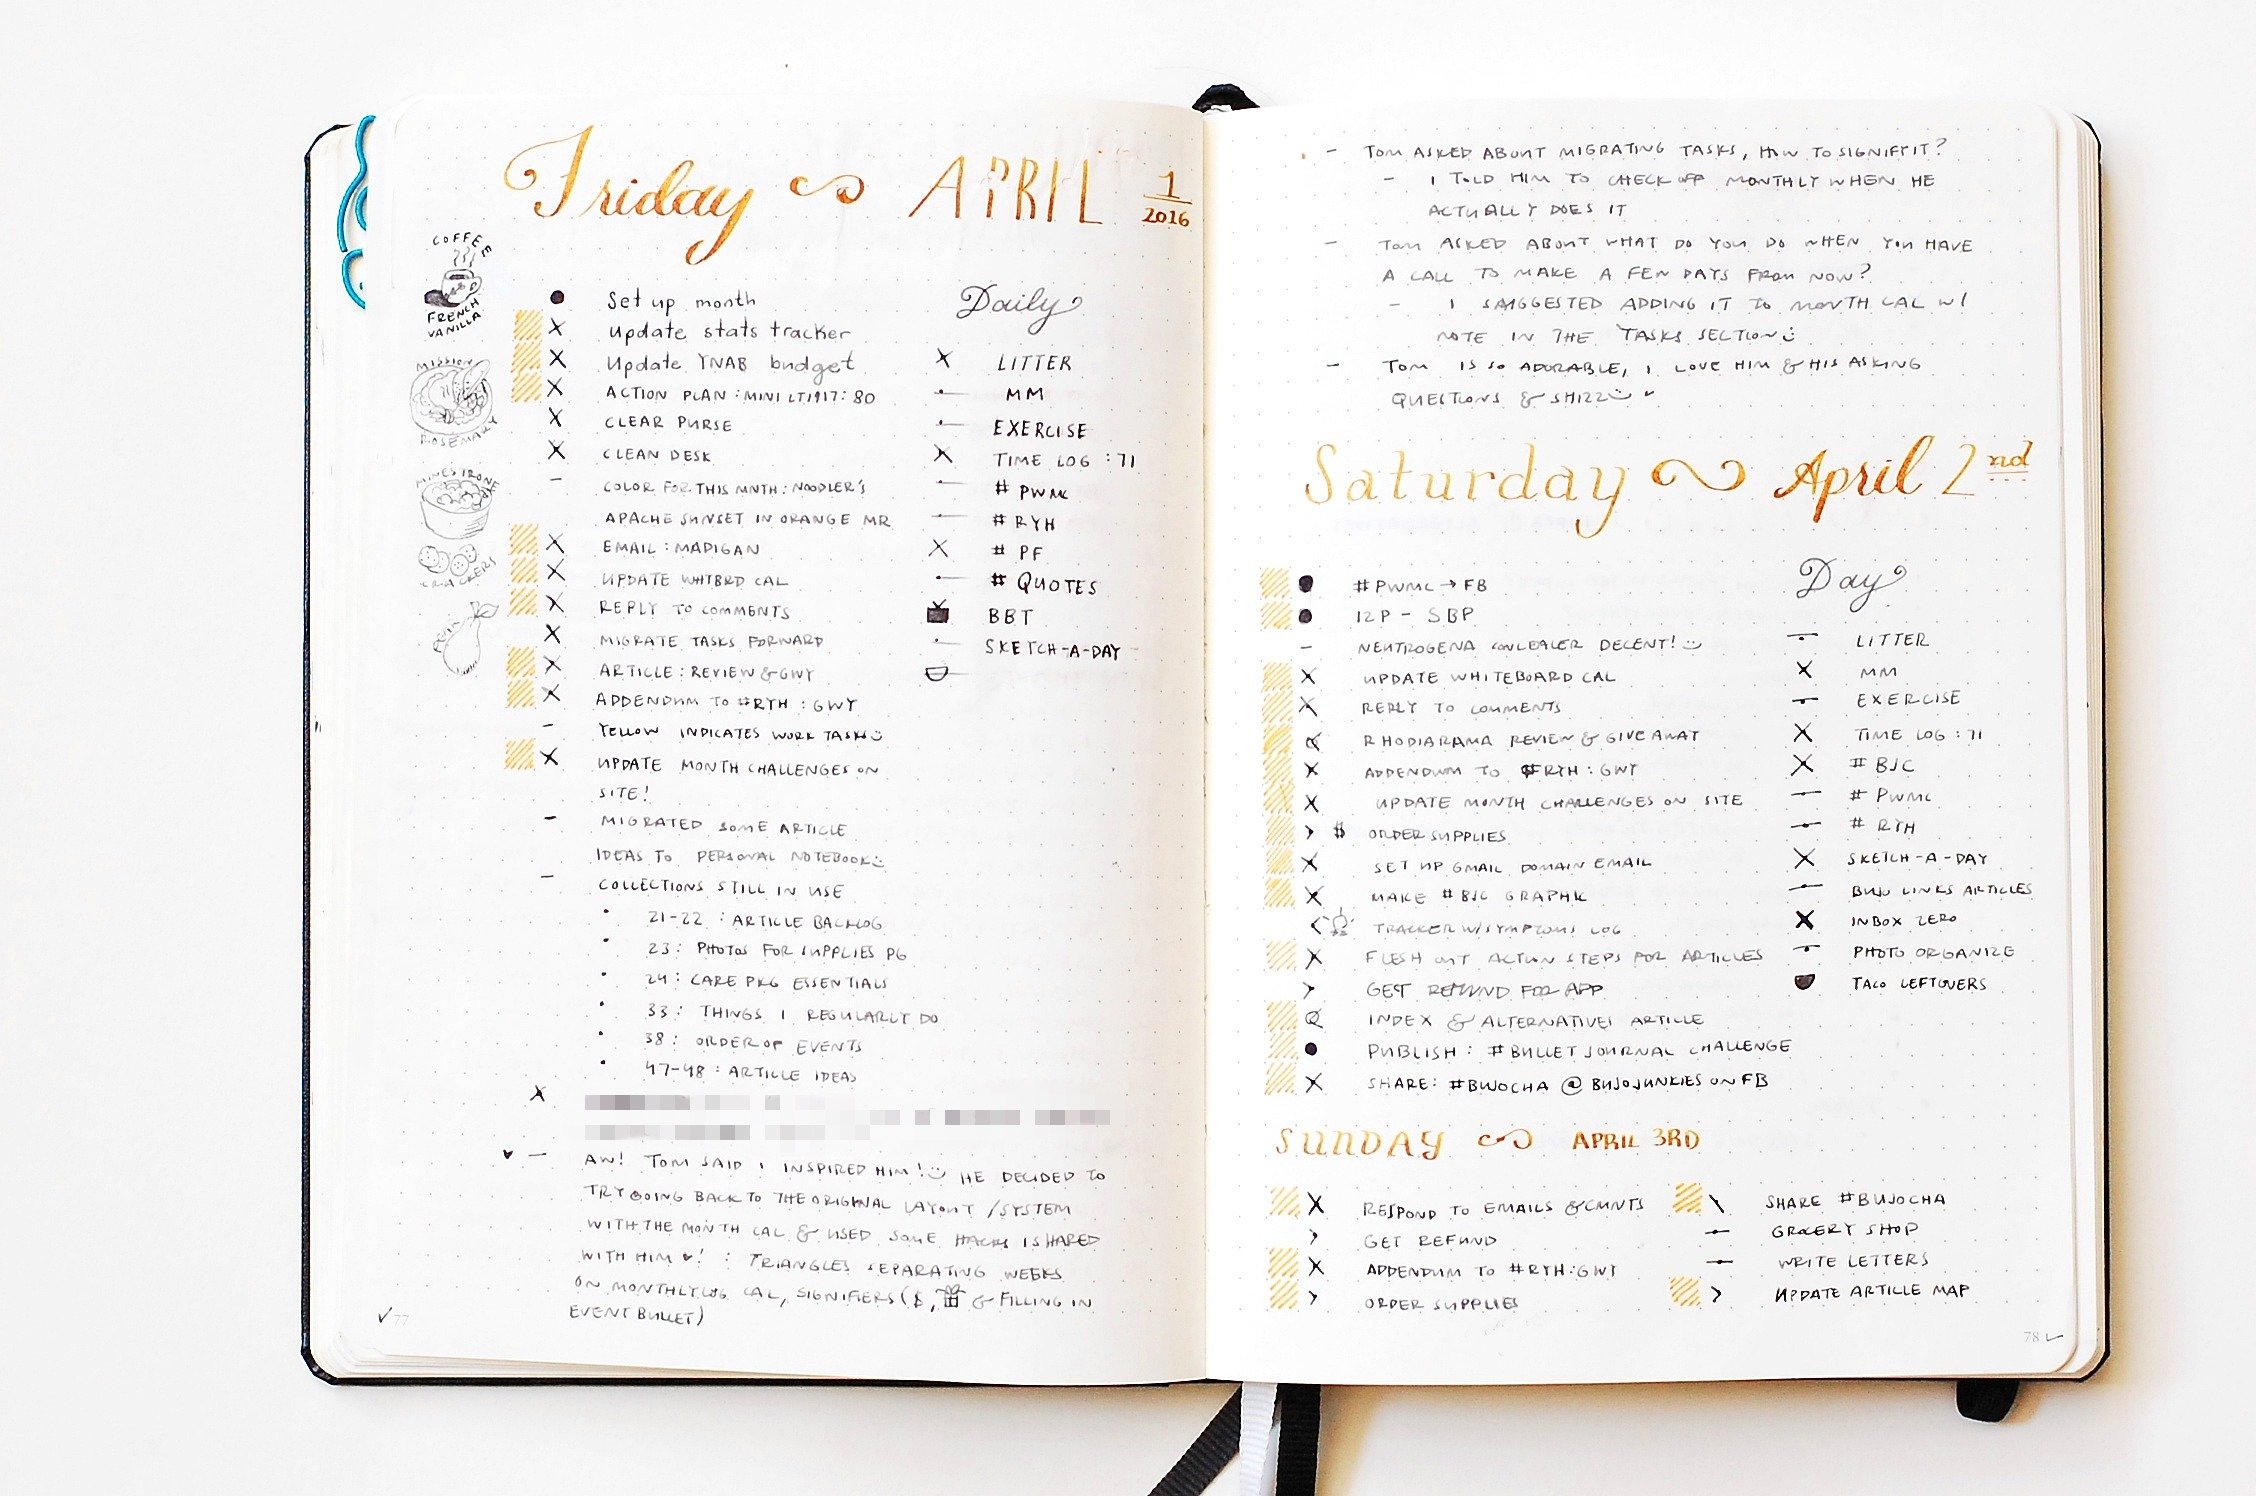 Friday APRIL 1
2016
COFFEE
FRENCH
VANILLA
MISSION
ROSEMARY
MINESTRONE
CRACKERS
PEAR
Set up month
Update stats tracker
Update YNAB budget
ACTION PLAN: MINI LT1917: 80
CLEAR PURSE
CLEAN DESK
COLOR FOR THIS MNTH: NOODLER'S
APACHE SUNSET IN ORANGE MR
EMAIL: MADIGAN
UPDATE WHTBRD CAL
REPLY TO COMMENTS
MIGRATE TASKS FORWARD
ARTICLE: REVIEW & GWY
ADDENDUM TO #RYH: GWY
YELLOW INDICATES WORK TASKS
UPDATE MONTH CHALLENGES ON
SITE!
MIGRATED SOME ARTICLE
IDEAS TO PERSONAL NOTEBOOK
COLLECTIONS STILL IN USE
21-22: ARTICLE BACKLOG
23: PHOTOS FOR SUPPLIES PG
24: CARE PKG ESSENTIALS
33: THINGS I REGULARLY DO
38: ORDER OF EVENTS
47-48: ARTICLE IDEAS
AW! TOM SAID I INSPIRED HIM! HE DECIDED TO
TRY GOING BACK TO THE ORIGINAL LAYOUT/SYSTEM
WITH THE MONTH CAL & USED SOME HACKS I SHARED
WITH HIM ♥! : TRIANGLES SEPARATING WEEKS
ON MONTHLY LOG CAL, SIGNIFIERS ($, & FILLING IN
EVENT BULLET)
77
Daily
LITTER
MM
EXERCISE
TIME LOG: 71
#PWMC
#RYH
#PF
#QUOTES
BBT
SKETCH-A-DAY
- TOM ASKED ABOUT MIGRATING TASKS, HOW TO SIGNIFY IT?
- I TOLD HIM TO CHECK OFF MONTHLY WHEN HE
ACTUALLY DOES IT
- TOM ASKED ABOUT WHAT DO YOU DO WHEN YOU HAVE
A CALL TO MAKE A FEW DAYS FROM NOW?
- I SUGGESTED ADDING IT TO MONTH CAL W/
NOTE IN THE TASKS SECTION
- TOM IS SO ADORABLE, I LOVE HIM & HIS ASKING
QUESTIONS & SHIZZ
Saturday April 2nd
#PWMC → FB
12P - SBP
NEUTROGENA CONCEALER DECENT!
UPDATE WHITEBOARD CAL
REPLY TO COMMENTS
RHODIARAMA REVIEW & GIVEAWAY
ADDENDUM TO #RYH: GWY
UPDATE MONTH CHALLENGES ON SITE
$ ORDER SUPPLIES
SET UP GMAIL DOMAIN EMAIL
MAKE #BJC GRAPHIC
TRACKER W/SYMPTOMS LOG
FLESH OUT ACTION STEPS FOR ARTICLES
GET REFUND FOR APP
INDEX & ALTERNATIVES ARTICLE
PUBLISH: #BULLET JOURNAL CHALLENGE
SHARE: #BUJOCHA @ BUJOJUNKIES ON FB
Day
LITTER
MM
EXERCISE
TIME LOG: 71
#BJC
#PWMC
#RYH
SKETCH-A-DAY
BUJO LINKS ARTICLES
INBOX ZERO
PHOTO ORGANIZE
TACO LEFTOVERS
SUNDAY APRIL 3RD
RESPOND TO EMAILS & CMNTS
GET REFUND
ADDENDUM TO #RYH: GWY
ORDER SUPPLIES
SHARE #BUJOCHA
GROCERY SHOP
WRITE LETTERS
UPDATE ARTICLE MAP
78